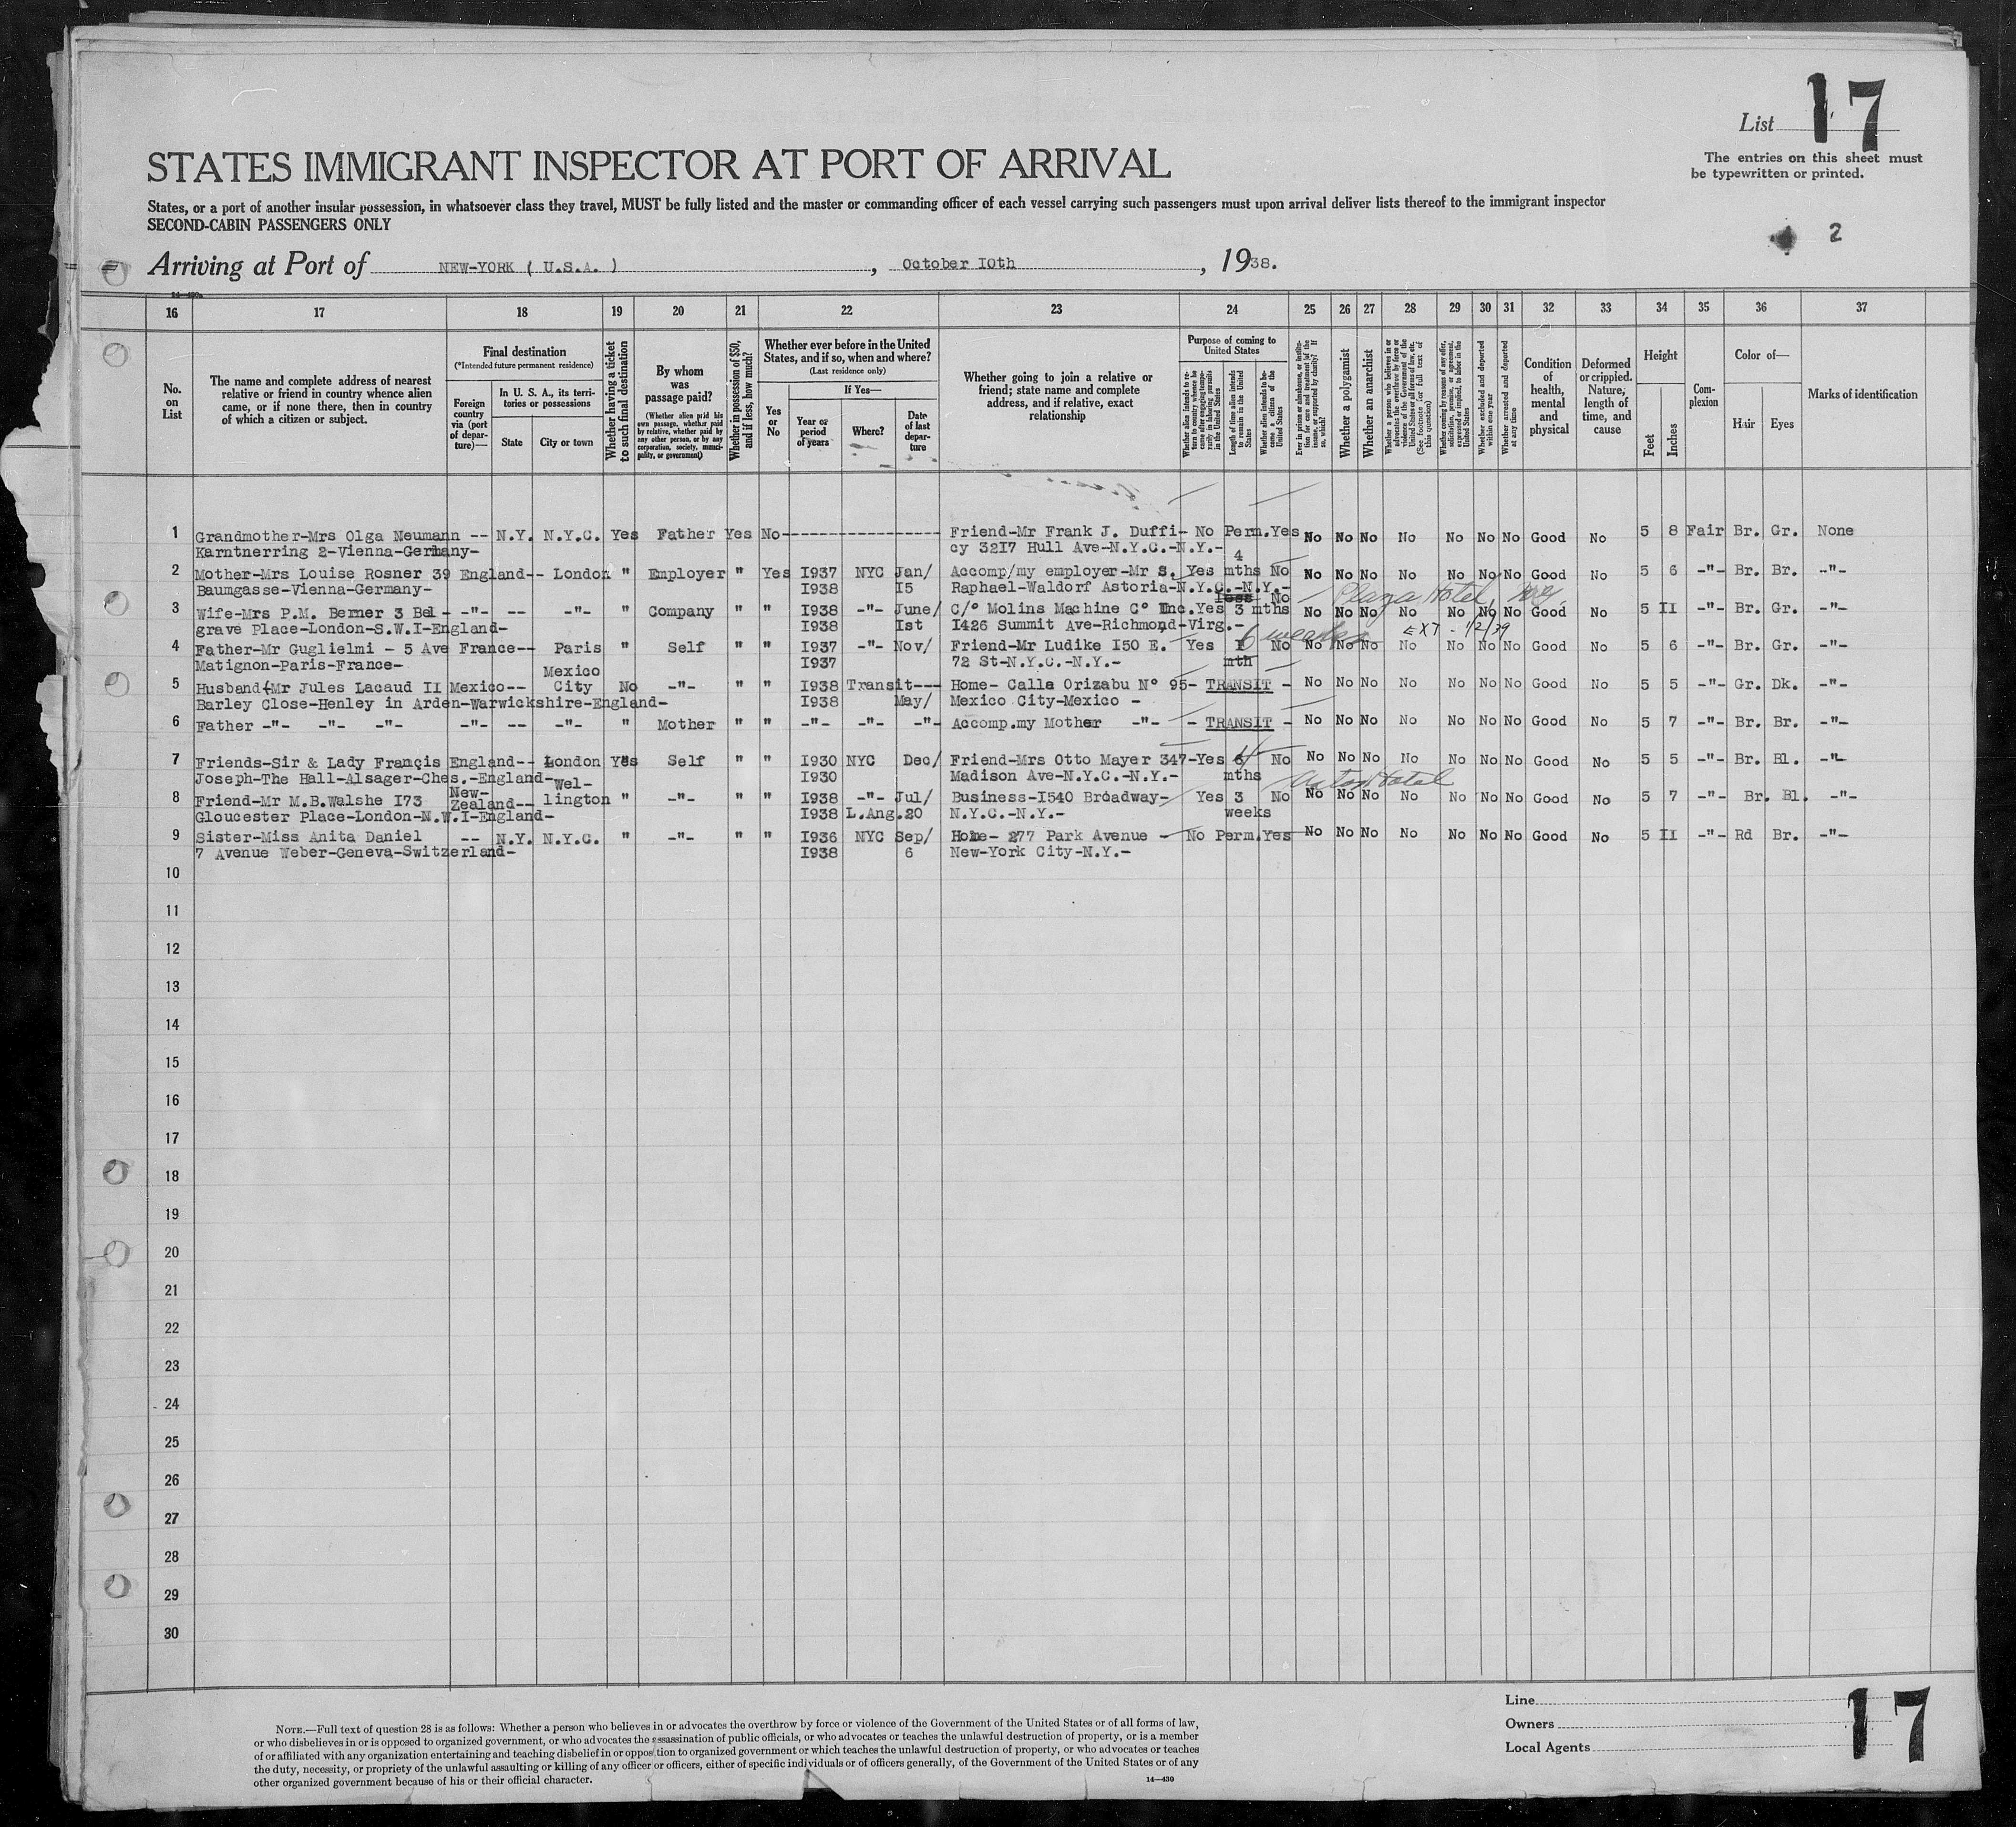 List 17
The entries on this sheet must
be typewritten or printed.
STATES IMMIGRANT INSPECTOR AT PORT OF ARRIVAL
States, or a port of another insular possession, in whatsoever class they travel, MUST be fully listed and the master or commanding officer of each vessel carrying such passengers must upon arrival deliver lists thereof to the immigrant inspector
SECOND-CABIN PASSENGERS ONLY
2
Arriving at Port of NEW-YORK ( U.S.A. ) , October 10th , 1938.
16 17 18 19 20 21 22 23 24 25 26 27 28 29 30 31 32 33 34 35 36 37
No. on List
The name and complete address of nearest relative or friend in country whence alien came, or if none there, then in country of which a citizen or subject.
Final destination
(*Intended future permanent residence)
Foreign country via (port of departure)—
In U. S. A., its territories or possessions
State
City or town
Whether having a ticket to such final destination
By whom was passage paid?
(Whether alien paid his own passage, whether paid by relative, whether paid by any other person, or by any corporation, society, municipality, or government)
Whether in possession of $50, and if less, how much?
Whether ever before in the United States, and if so, when and where?
(Last residence only)
Yes or No
If Yes—
Year or period of years
Where?
Date of last departure
Whether going to join a relative or friend; state name and complete address, and if relative, exact relationship
Purpose of coming to United States
Whether alien intends to return to country whence he came after engaging temporarily in laboring pursuits in the United States
Length of time alien intends to remain in the United States
Whether alien intends to become a citizen of the United States
Ever in prison or almshouse, or institution for care and treatment of the insane, or supported by charity? If so, which?
Whether a polygamist
Whether an anarchist
Whether a person who believes in or advocates the overthrow by force or violence of the Government of the United States or all forms of law, etc. (See footnote for full text of this question)
Whether coming by reason of any offer, solicitation, promise, or agreement, expressed or implied, to labor in the United States
Whether excluded and deported within one year
Whether arrested and deported at any time
Condition of health, mental and physical
Deformed or crippled. Nature, length of time, and cause
Height
Feet
Inches
Complexion
Color of—
Hair
Eyes
Marks of identification
1 Grandmother-Mrs Olga Neumann -- N.Y. N.Y.C. Yes Father Yes No---------------- Friend-Mr Frank J. Duffi- No Perm. Yes No No No No No No No Good No 5 8 Fair Br. Gr. None
Karntnerring 2-Vienna-Germany- cy 3217 Hull Ave-N.Y.C.-N.Y.-
4
2 Mother-Mrs Louise Rosner 39 England-- London " Employer " Yes I937 NYC Jan/ Accomp/my employer-Mr S. Yes mths No No No No No No No No Good No 5 6 -"- Br. Br. -"-
Baumgasse-Vienna-Germany- I938 I5 Raphael-Waldorf Astoria-N.Y.C.-N.Y.-
No Plaza Hotel
3 Wife-Mrs P.M. Berner 3 Bel- -"- -- -"- " Company " " I938 -"- June/ C/° Molins Machine C° Inc. Yes 3 mths No No No No No No No Good No 5 II -"- Br. Gr. -"-
grave Place-London-S.W.I-England- I938 Ist I426 Summit Ave-Richmond-Virg.-
6 weeks EXT - 1/2/39
4 Father-Mr Guglielmi - 5 Ave France-- Paris " Self " " I937 -"- Nov/ Friend-Mr Ludike I50 E. Yes I No No No No No No No No Good No 5 6 -"- Br. Gr. -"-
Matignon-Paris-France- I937 72 St-N.Y.C.-N.Y.- mth
Mexico
5 Husband-Mr Jules Lacaud II Mexico-- City No -"- " " I938 Transit--- Home- Calle Orizabu N° 95- TRANSIT - No No No No No No No Good No 5 5 -"- Gr. Dk. -"-
Barley Close-Henley in Arden-Warwickshire-England- I938 May/ Mexico City-Mexico -
6 Father -"- -"- -"- -"- -- -"- " Mother " " -"- -"- -"- Accomp.my Mother -"- - TRANSIT - No No No No No No No Good No 5 7 -"- Br. Br. -"-
7 Friends-Sir & Lady Françis England-- London Yes Self " " I930 NYC Dec/ Friend-Mrs Otto Mayer 347-Yes No No No No No No No No Good No 5 5 -"- Br. Bl. -"-
Joseph-The Hall-Alsager-Ches.-England- I930 Madison Ave-N.Y.C.-N.Y.- mths
New- Wel- Hotel
8 Friend-Mr M.B.Walshe I73 Zealand-- lington " -"- " " I938 -"- Jul/ Business-I540 Broadway- Yes 3 No No No No No No No No Good No 5 7 -"- Br. Bl. -"-
Gloucester Place-London-N.W.I-England- I938 L.Ang. 20 N.Y.C.-N.Y.- weeks
9 Sister-Miss Anita Daniel -- N.Y. N.Y.C. " -"- " " I936 NYC Sep/ Home- 277 Park Avenue - No Perm. Yes No No No No No No No Good No 5 II -"- Rd Br. -"-
7 Avenue Weber-Geneva-Switzerland- I938 6 New-York City-N.Y.-
10
11
12
13
14
15
16
17
18
19
20
21
22
23
24
25
26
27
28
29
30
NOTE.—Full text of question 28 is as follows: Whether a person who believes in or advocates the overthrow by force or violence of the Government of the United States or of all forms of law,
or who disbelieves in or is opposed to organized government, or who advocates the assassination of public officials, or who advocates or teaches the unlawful destruction of property, or is a member
of or affiliated with any organization entertaining and teaching disbelief in or opposition to organized government or which teaches the unlawful destruction of property, or who advocates or teaches
the duty, necessity, or propriety of the unlawful assaulting or killing of any officer or officers, either of specific individuals or of officers generally, of the Government of the United States or of any
other organized government because of his or their official character.
14—430
Line
Owners
Local Agents
17